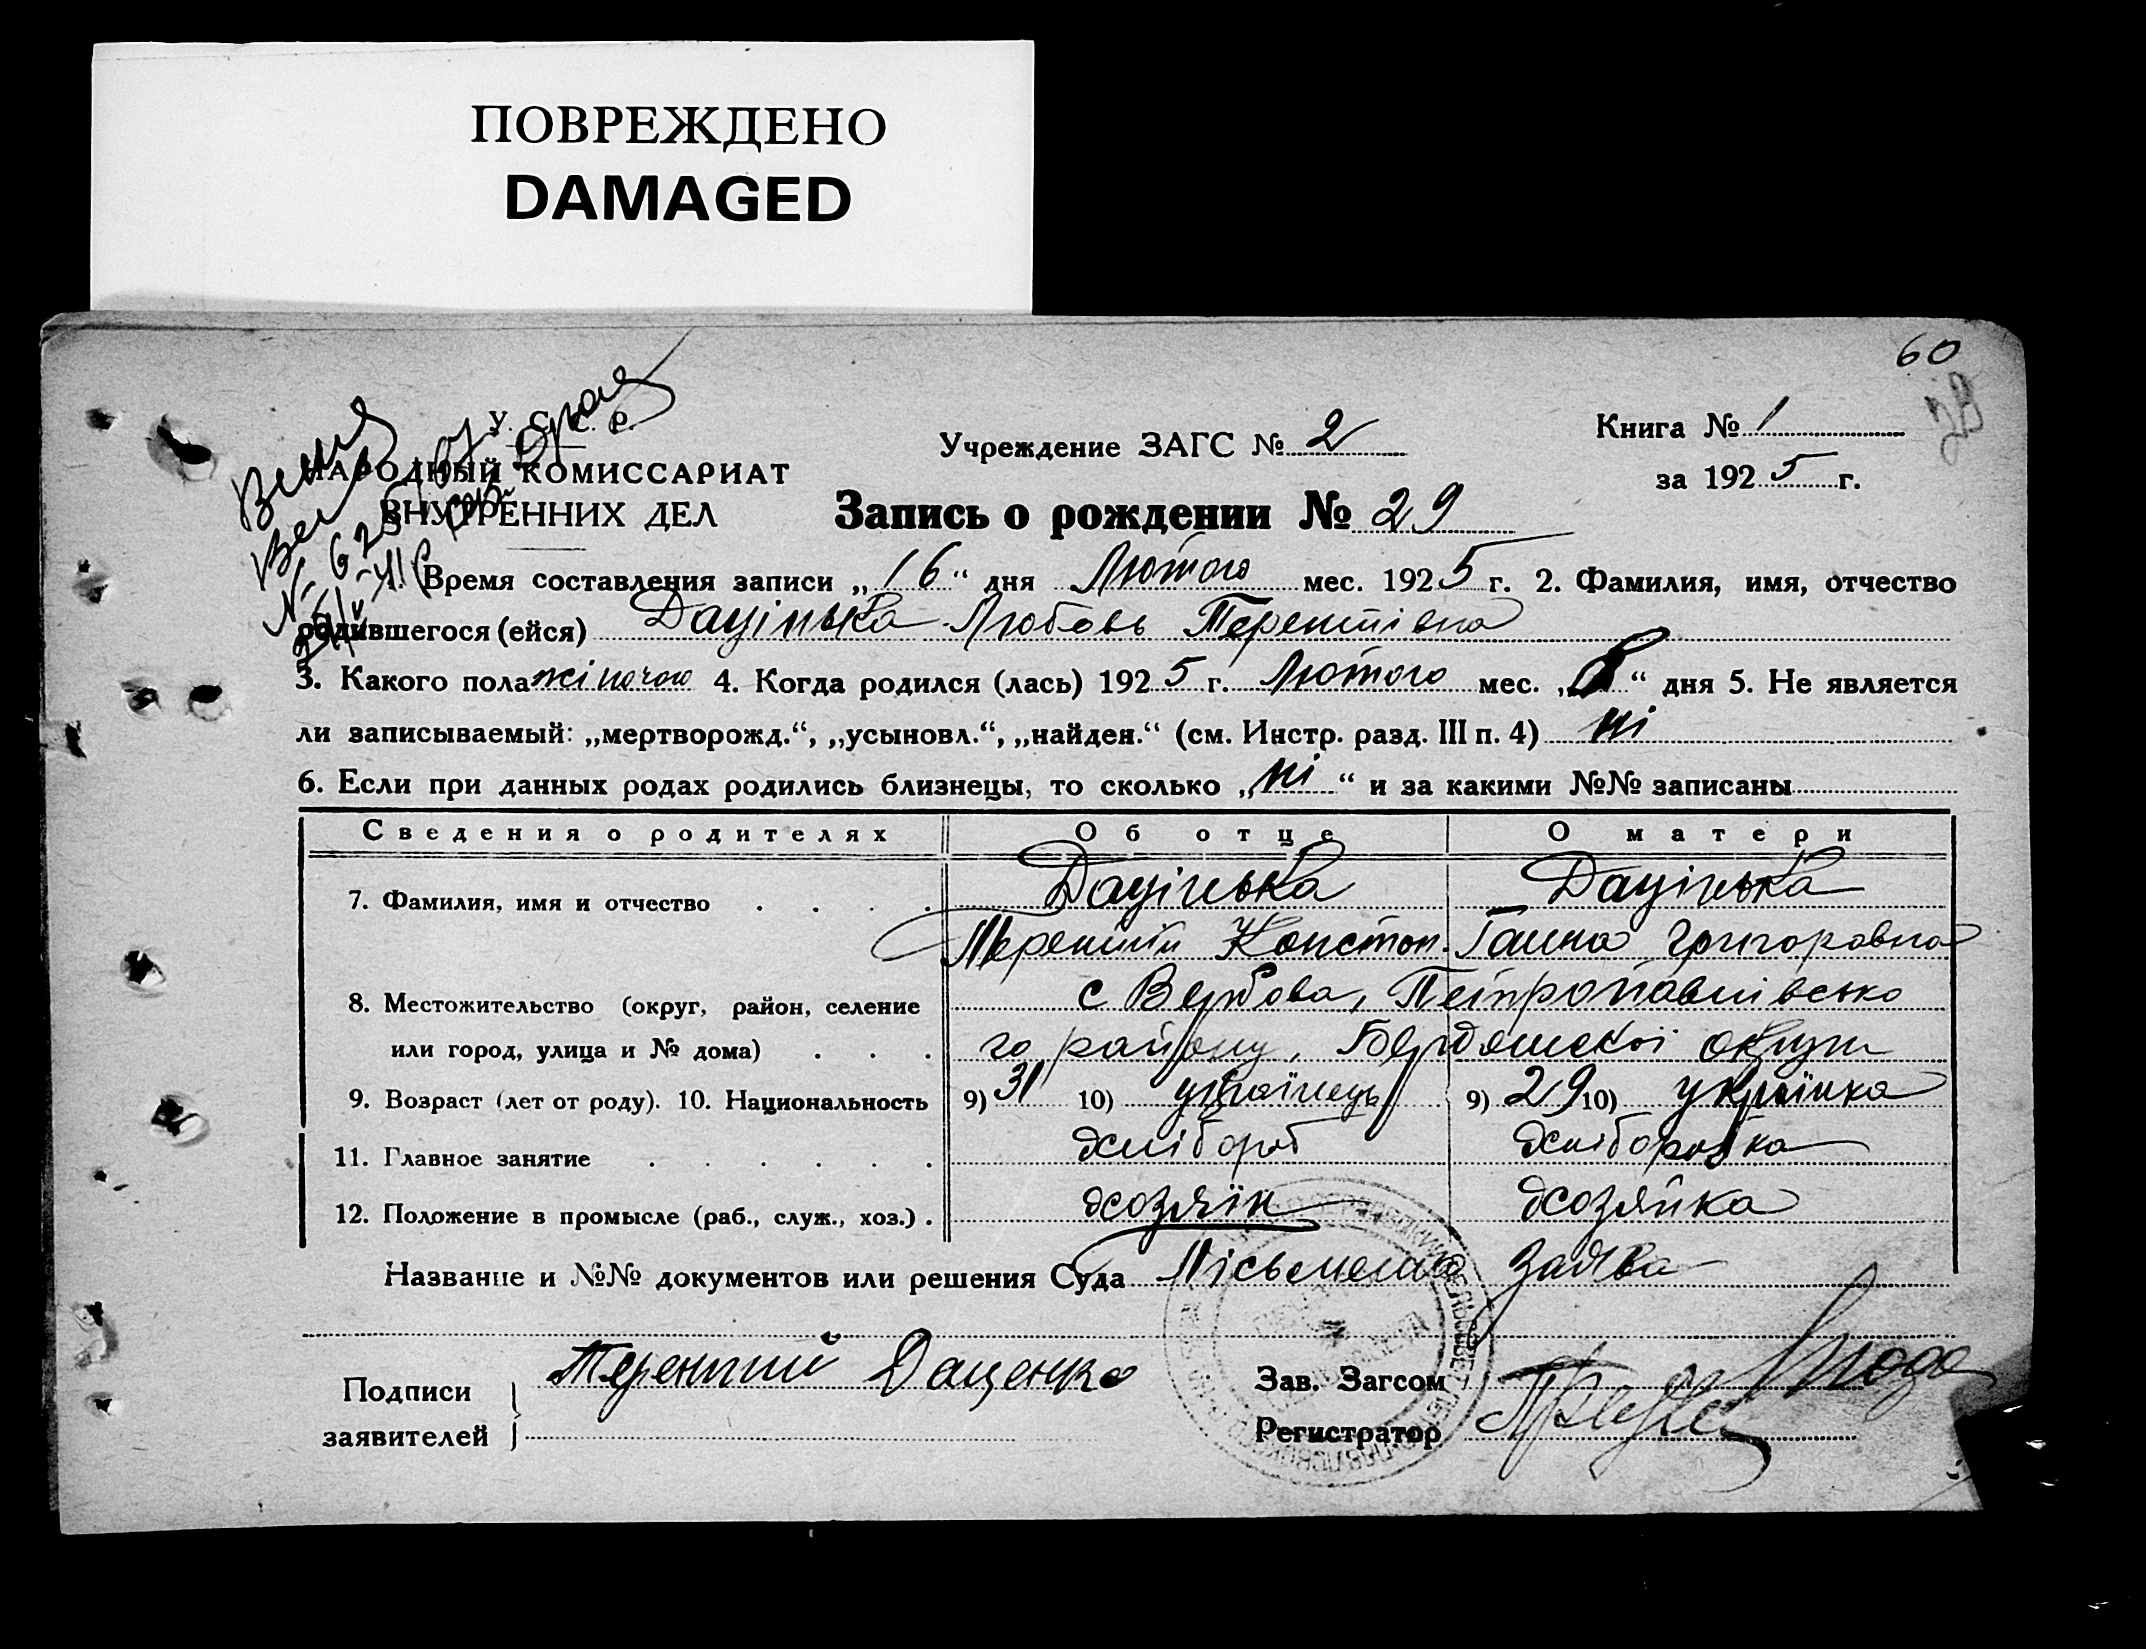 ПОВРЕЖДЕНО
DAMAGED
60
У. С. С. Р.
НАРОДНЫЙ КОМИССАРИАТ
ВНУТРЕННИХ ДЕЛ
Учреждение ЗАГС № 2
Книга № 1
за 1925 г.
Запись о рождении № 29
1. Время составления записи „16“ дня Лютого мес. 1925 г. 2. Фамилия, имя, отчество
родившегося (ейся) Дацінька Любовь Терентівна
3. Какого пола жіночою 4. Когда родился (лась) 1925 г. Лютого мес. „8“ дня 5. Не является
ли записываемый: „мертворожд.“, „усыновл.“, „найден.“ (см. Инстр. разд. III п. 4) ні
6. Если при данных родах родились близнецы, то сколько „ні“ и за какими №№ записаны
Сведения о родителях Об отце О матери
7. Фамилия, имя и отчество Дацінька Дацінька
Терентій Констан. Ганна Григоровна
8. Местожительство (округ, район, селение с Вербова, Петропавлівсько
или город, улица и № дома) го району, Бердянскої округи
9. Возраст (лет от роду). 10. Национальность 9) 31 10) украінець 9) 29 10) украінка
11. Главное занятие хлібороб хліборобка
12. Положение в промысле (раб., служ., хоз.) хозяїн хозяйка
Название и №№ документов или решения Суда Пісьмена заява
Подписи Терентий Даценко Зав. Загсом
заявителей Регистратор